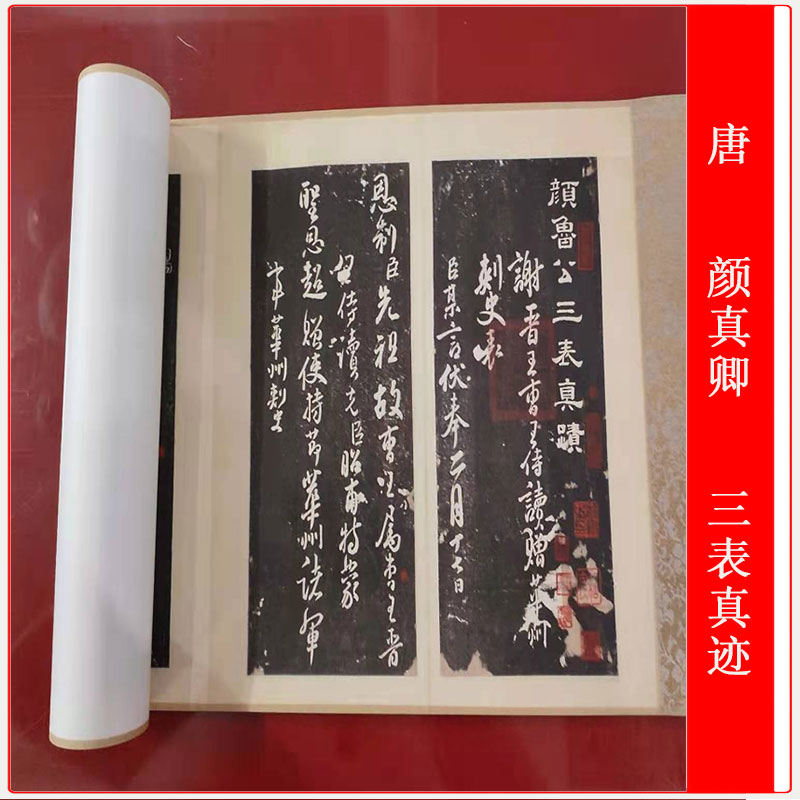 唐 颜真卿 三表真迹
顔魯公三表真蹟
謝晋王曹王侍讀贈華州
刺史表
臣某言伏奉二月十日
恩制臣先祖故曹王属王晋
王侍讀先臣昭甫特蒙
聖恩超贈使持節華州諸軍
事華州刺史